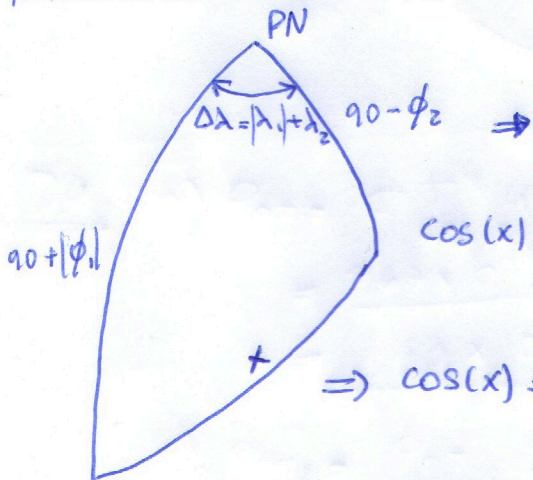 PN
Δλ = |λ₁| + λ₂
90 - ϕ₂
⇒
90 + |ϕ₁|
cos(x)
x
⇒ cos(x) =